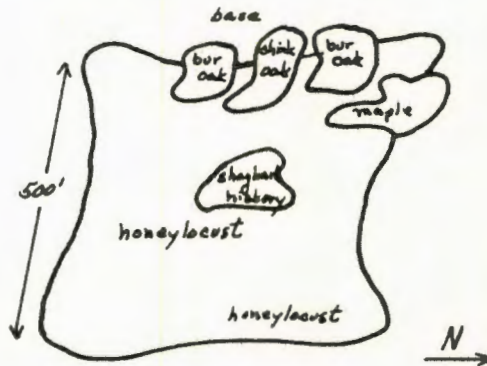 base
bur
oak
chink
oak
bur
oak
maple
shagbark
hickory
500'
honeylocust
honeylocust
N